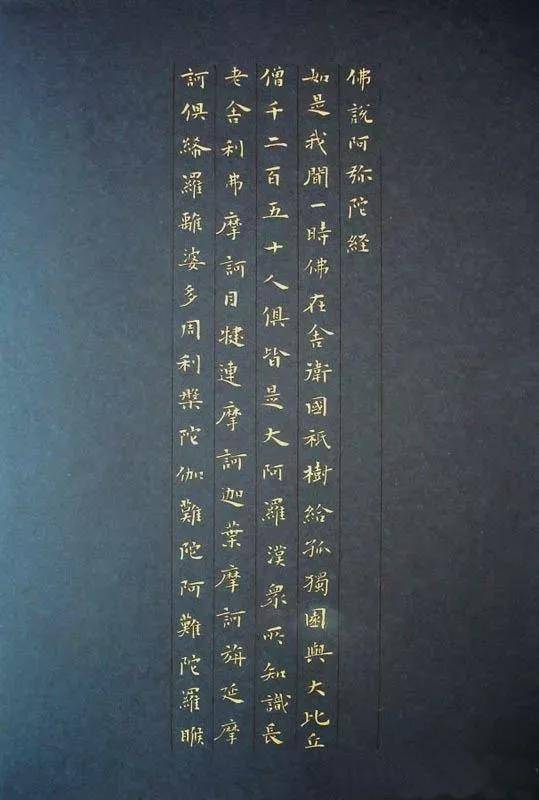 佛説阿弥陀経
如是我聞一時佛在舎衛國祇樹給孤獨園與大比丘
僧千二百五十人俱皆是大阿羅漢衆所知識長
老舎利弗摩訶目犍連摩訶迦葉摩訶旃延摩
訶俱絺羅離婆多周利槃陀伽難陀阿難陀羅睺